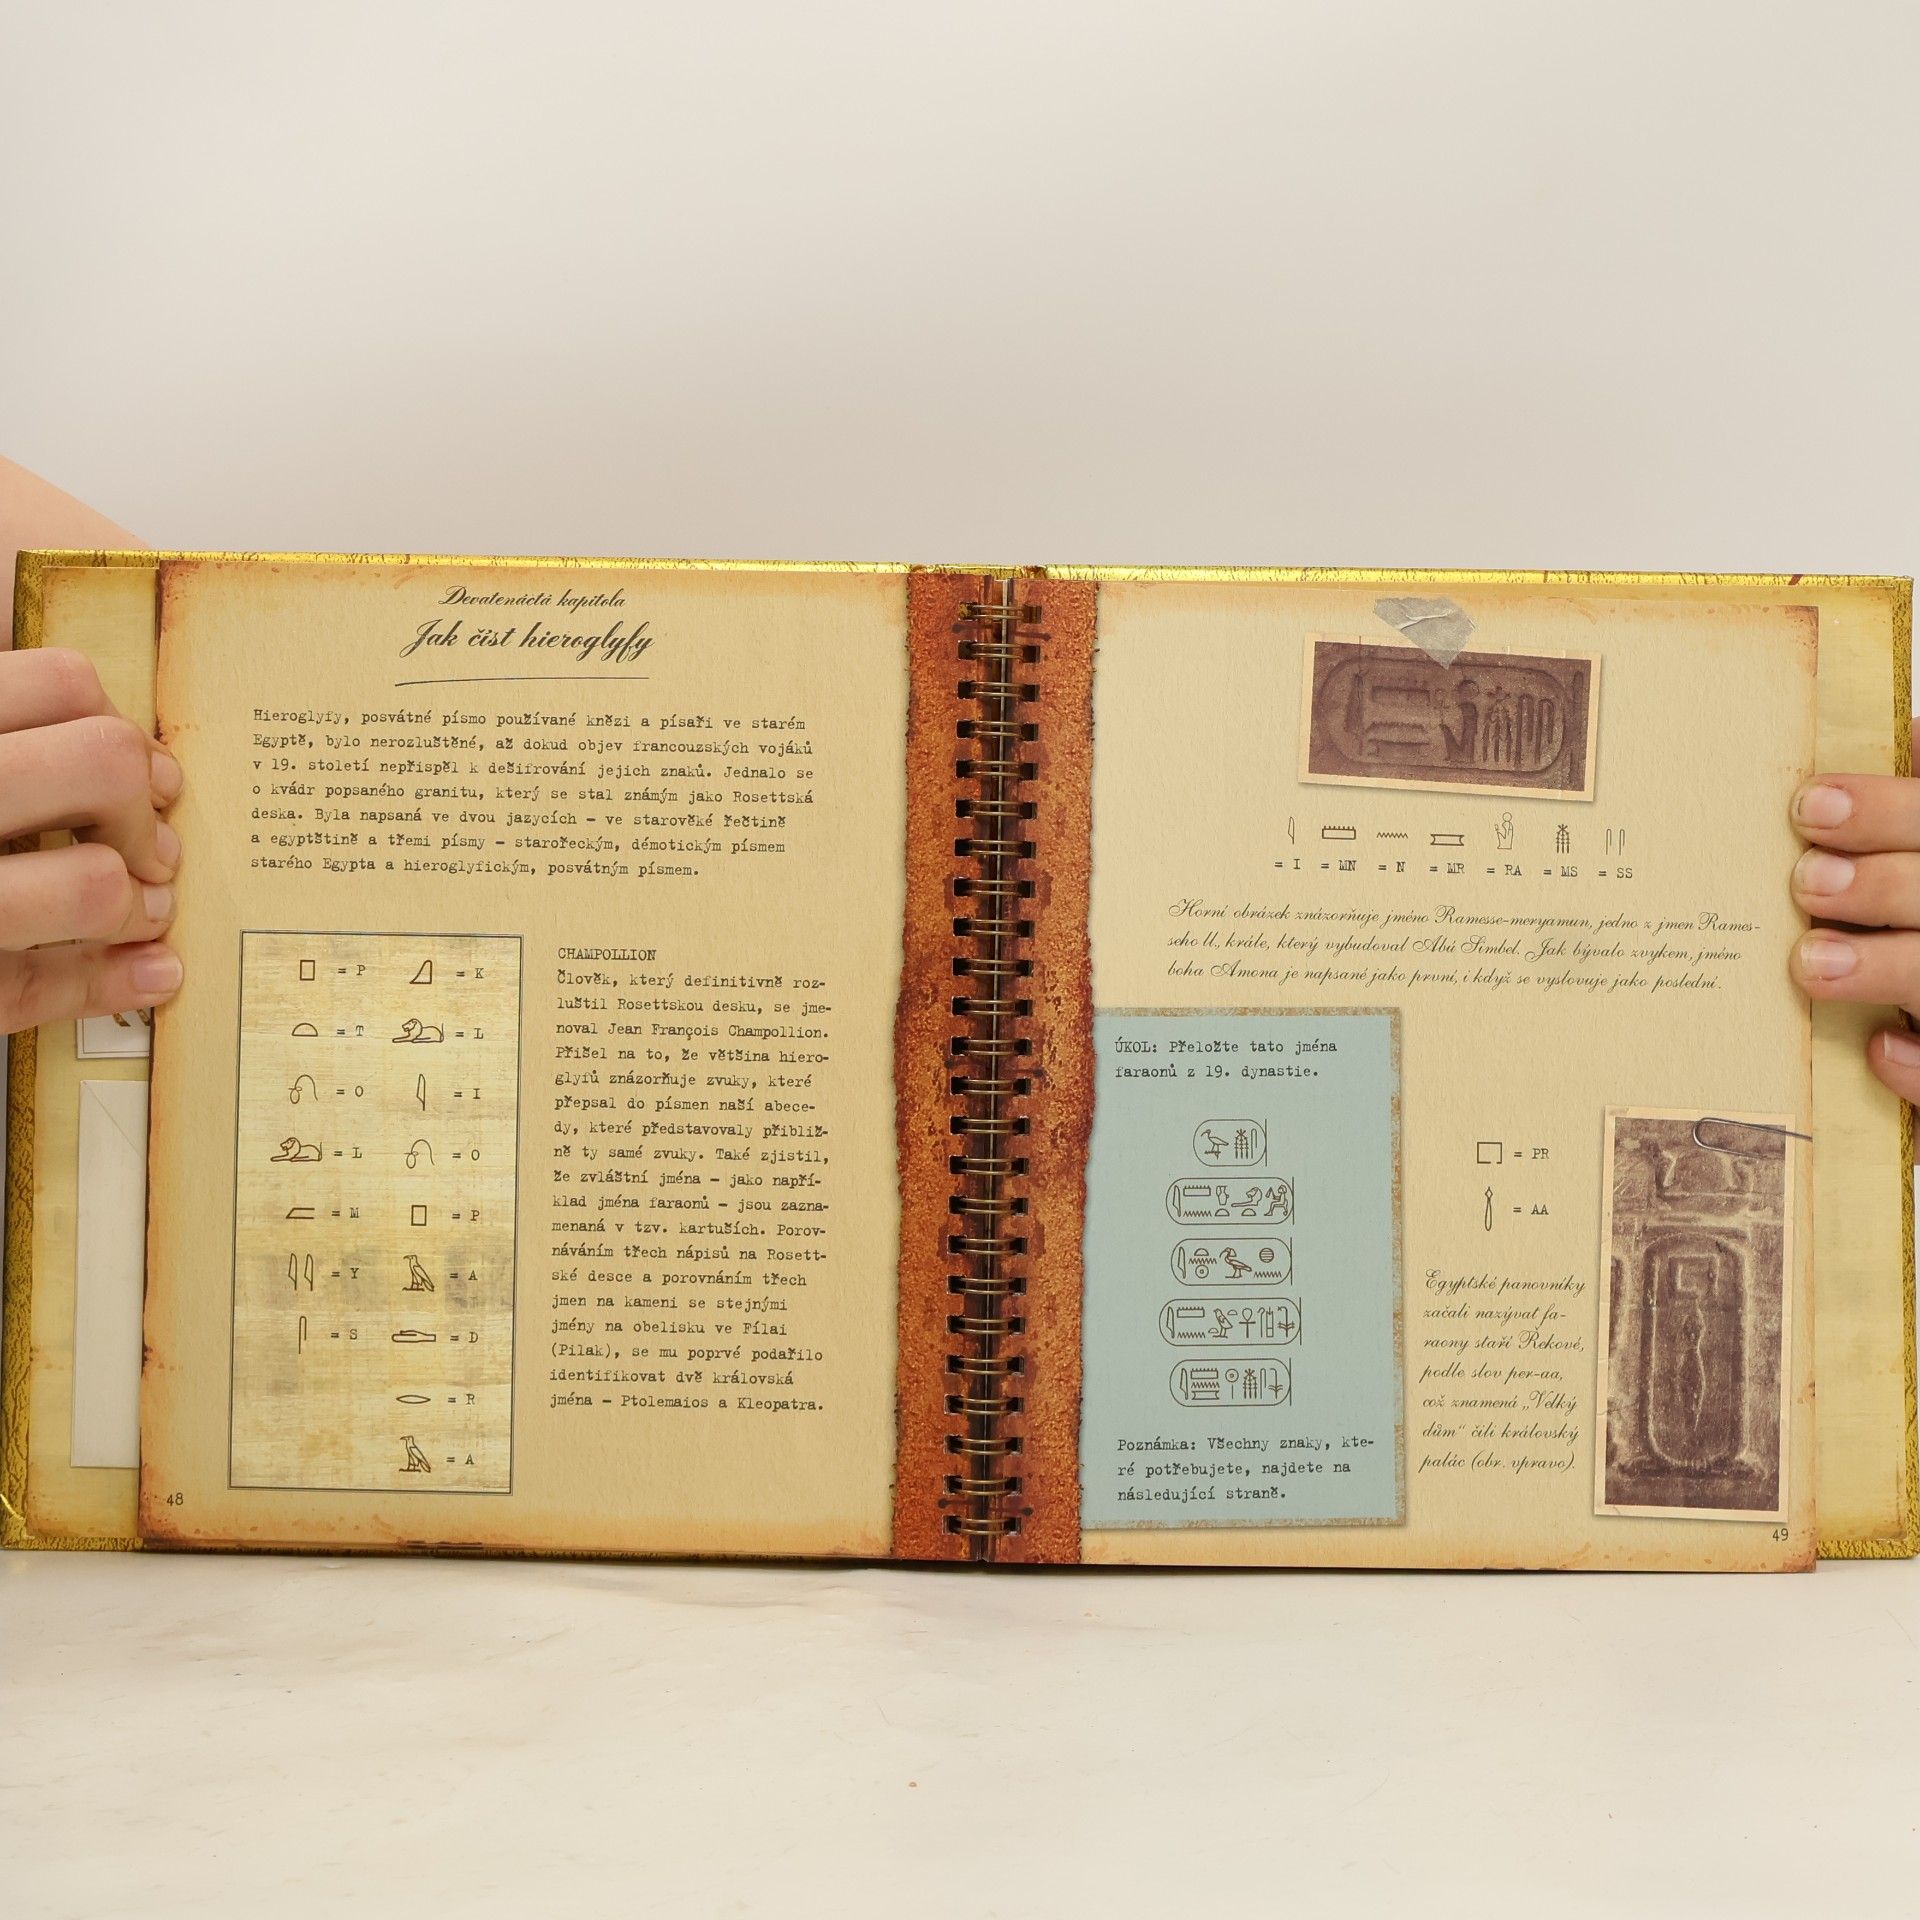 Devatenáctá kapitola
Jak číst hieroglyfy
Hieroglyfy, posvátné písmo používané knězi a písaři ve starém
Egyptě, bylo nerozluštěné, až dokud objev francouzských vojáků
v 19. století nepřispěl k dešifrování jejich znaků. Jednalo se
o kvádr popsaného granitu, který se stal známým jako Rosettská
deska. Byla napsaná ve dvou jazycích – ve starověké řečtině
a egyptštině a třemi písmy – starořeckým, démotickým písmem
starého Egypta a hieroglyfickým, posvátným písmem.
= P = K
= T = L
= O = I
= L = O
= M = P
= Y = A
= S = D
= R
= A
CHAMPOLLION
Člověk, který definitivně roz-
luštil Rosettskou desku, se jme-
noval Jean François Champollion.
Přišel na to, že většina hiero-
glyfů znázorňuje zvuky, které
přepsal do písmen naší abece-
dy, které představovaly přibliž-
ně ty samé zvuky. Také zjistil,
že zvláštní jména – jako napří-
klad jména faraonů – jsou zazna-
menaná v tzv. kartuších. Porov-
náváním třech nápisů na Rosett-
ské desce a porovnáním třech
jmen na kameni se stejnými
jmény na obelisku ve Fílai
(Pilak), se mu poprvé podařilo
identifikovat dvě královská
jména – Ptolemaios a Kleopatra.
48
= I = MN = N = MR = RA = MS = SS
Horní obrázek znázorňuje jméno Ramesse-meryamun, jedno z jmen Rames-
seho II., krále, který vybudoval Abú Simbel. Jak bývalo zvykem, jméno
boha Amona je napsané jako první, i když se vyslovuje jako poslední.
ÚKOL: Přeložte tato jména
faraonů z 19. dynastie.
Poznámka: Všechny znaky, kte-
ré potřebujete, najdete na
následující straně.
= PR
= AA
Egyptské panovníky
začali nazývat fa-
raony staří Řekové,
podle slov per-aa,
což znamená „Velký
dům“ čili královský
palác (obr. vpravo).
49